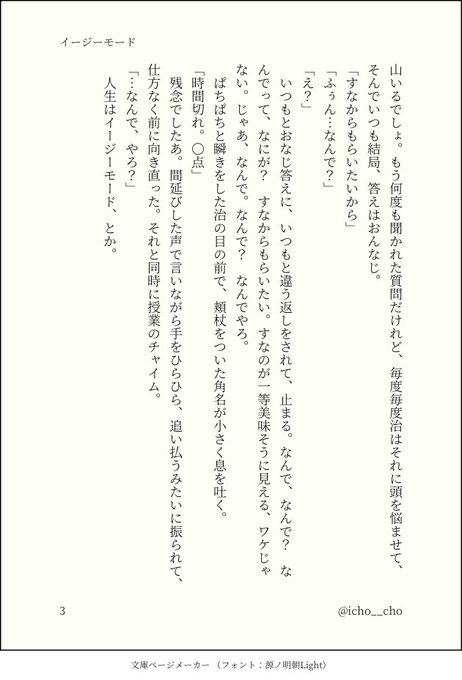 イージーモード
山いるでしょ。もう何度も聞かれた質問だけれど、毎度毎度治はそれに頭を悩ませて、
そんでいつも結局、答えはおんなじ。
「すなからもらいたいから」
「ふぅん…なんで？」
「え？」
いつもとおなじ答えに、いつもと違う返しをされて、止まる。なんで、なんで？　な
んでって、なにが？　すなからもらいたい。すなのが一等美味そうに見える、ワケじゃ
ない。じゃあ、なんで。なんで？　なんでやろ。
ぱちぱちと瞬きをした治の目の前で、頬杖をついた角名が小さく息を吐く。
「時間切れ。〇点」
残念でしたあ。間延びした声で言いながら手をひらひら、追い払うみたいに振られて、
仕方なく前に向き直った。それと同時に授業のチャイム。
「…なんで、やろ？」
人生はイージーモード、とか。
3
@icho__cho
文庫ページメーカー（フォント：源ノ明朝Light）